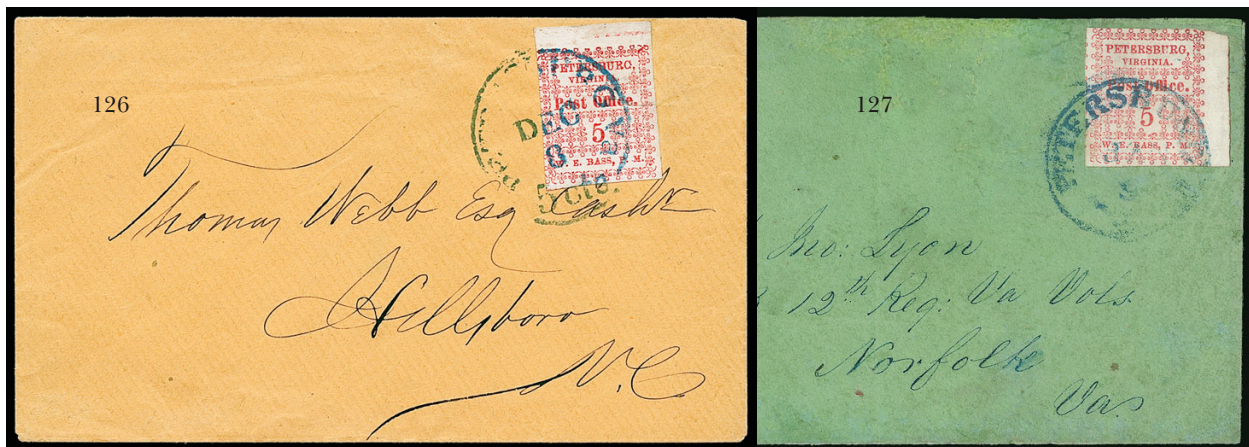 126
PETERSBURG,
VIRGINIA.
Post Office.
5
W. E. BASS, P. M.
DEC
8
PAID
5 cts.
Thomas Webb Esq Cashr
Hillsboro
N.C
127
PETERSBURG,
VIRGINIA.
Post Office.
5
W. E. BASS, P. M.
PETERSBURG
Jno: Lyon
12th Reg: Va Vols
Norfolk
Va.